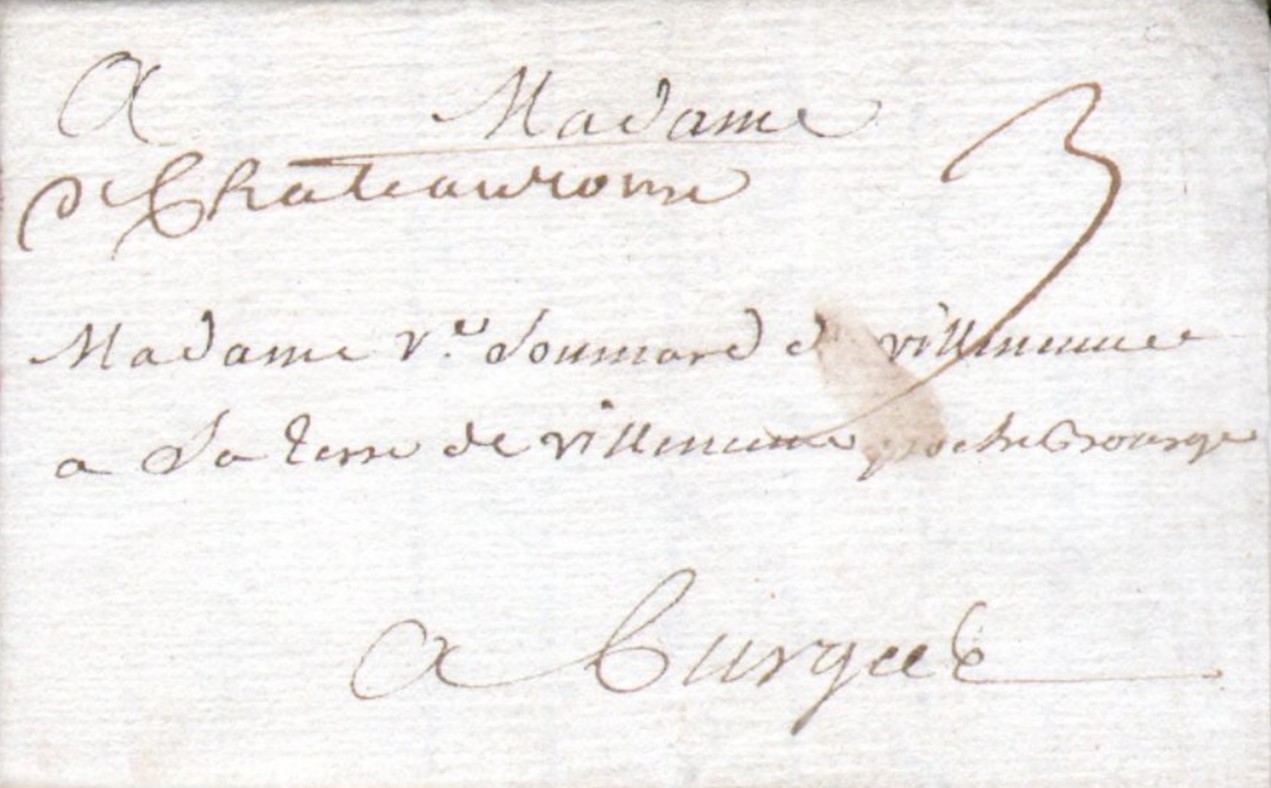 A Madame 3
d Chateauroux
Madame v.e Soumard de villeneuve
a La terre de villeneuve proche Bourge
a Bourges